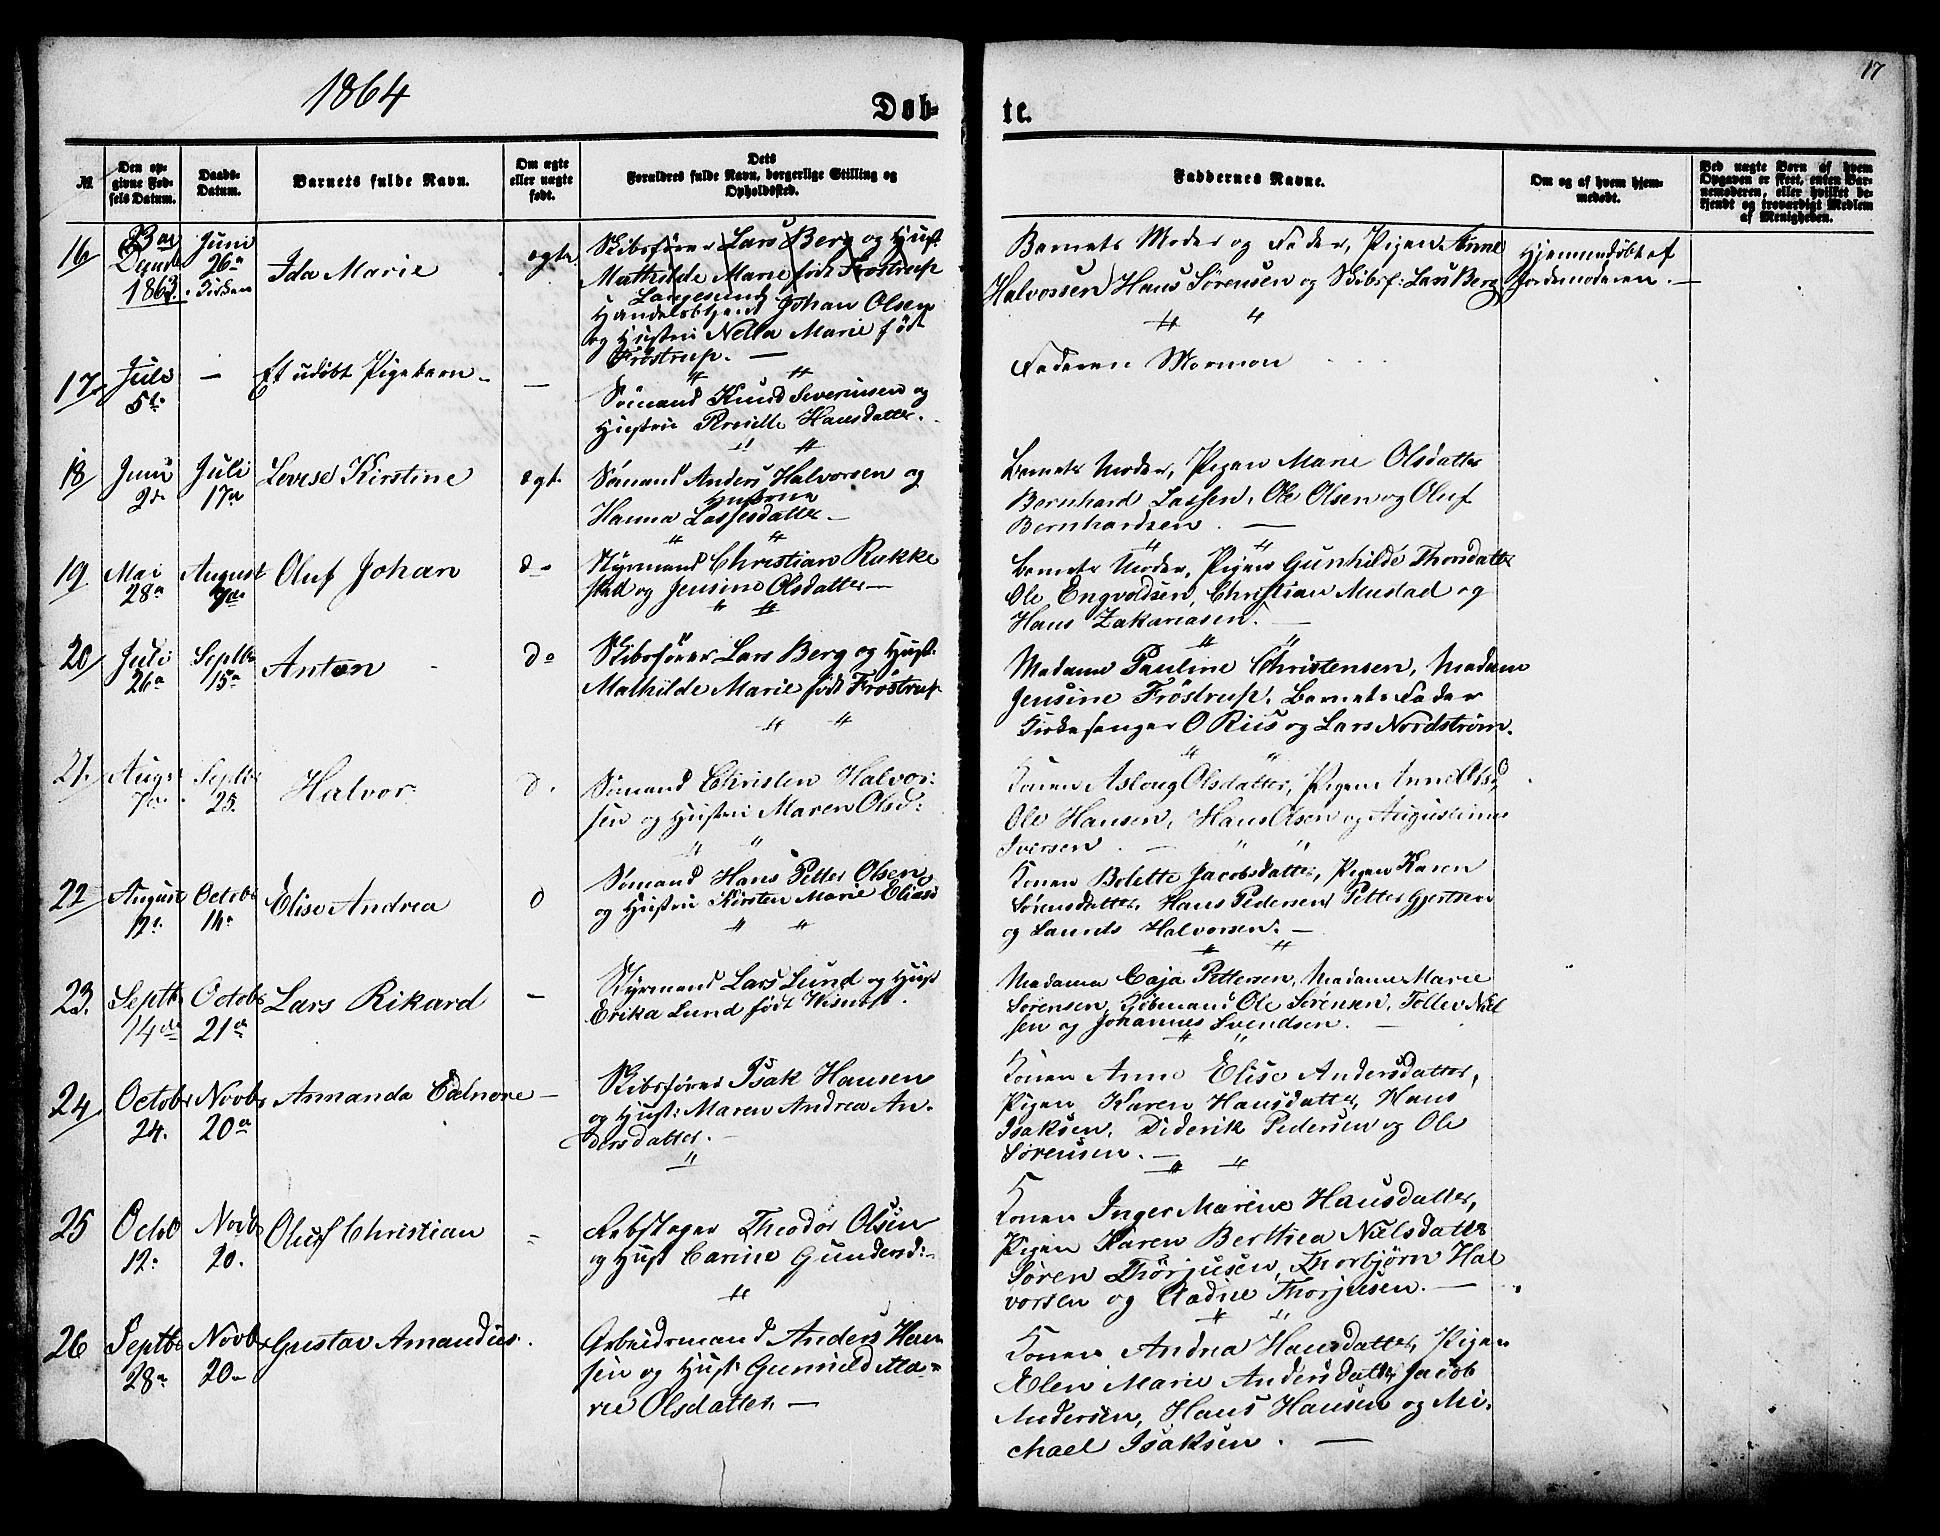 1864
17
Døbte.
№
Den opgivne Fødsels Datum.
Daabs-Datum.
Barnets fulde Navn.
Om ægte eller uægte født.
Dets Forældres fulde Navn, borgerlige Stilling og Opholdssted.
Faddernes Navne.
Om og af hvem hjemmedøbt.
Ved uægte Børn af hvem Opgaven er skeet, enten Barnemoderen, eller hvilket bekjendt og troværdigt Medlem af Menigheden.
16
1863
Juni
26a
Kirken
Ida Marie
ægte
Skibsfører Lars Berg og Hust
Mathilde Marie født Frostrup
Langesund
Johan Olsen
og Hustru Nella Marie født
Frostrup. —
Barnets Moder og Fader, Pigen
Halvossen Hans Sørensen og Skibsf: Lars Berg
Hjemmedøbt af
Jordemoderen. —
17
Juli
5te
—
Et udøbt Pigebarn
—
Sømand Knud Severinsen og
Hustru Pernille Hansdatter.
Faderen Mormon
18
Juni
2de
Juli
17de
Lovise Kirstine
ægt.
Sømand Anders Halvorsen og
Hustrue
Hanna Lassesdatter —
Barnets Moder, Pigen Marie Olsdatter
Bernhard Lassen, Ole Olsen og Oluf
Bernhardsen. —
19.
Mai
28a
August
7de
Oluf Johan
do
Styrmand Christian Rukke
stad og Jensine Olsdatter —
Barnets Moder, Pigen Gunhilde Thorsdatter
Ole Engvoldsen, Christian Mustad og
Hans Zakariasen. —
20
Juli
26a
Septbr
15a
Anton
do
Skibsfører Lars Berg og Hust:
Mathilde Marie født Frostrup
Madame Pauline Christensen, Madam
Jensine Frøstrup, Barnets Fader
Kirkesanger O Riis og Lars Nordstrøm.
21.
Augs
7de
Septbr
25.
Halvor
d.
Sømand Christen Halvor:
sen og Hustru Maren Olsd:
Konen Aslaug Olsdatter, Pigen Anne Olsd,
Ole Hansen, Hans Olsen og Augustinus
Iversen
22
August
12.
Octobr
14.
Elise Andrea
d
Sømand Hans Petter Olsen
og Hustru Kirsten Marie Eliasd
Konen Bolette Jacobsdatter, Pigen Karen
Sørensdatter, Hans Pedersen, Petter Gjertsen
og Laurits Halvorsen. —
23.
Septbr
14de
Octobr
21a
Lars Rikard
—
Styrmand Lars Lund og Hust
Erika Lund født
Madame Caja Pettersen, Madame Marie
Sørensen, Kjøbmand Ole Sørensen, Tollev Niel
sen og Johannes Svendsen.
24
Octobr
24.
Novbr
20a
Amanda Eælnore
—
Skibsfører Isak Hansen
og Hust: Maren Andrea An.
dersdatter. —
Konen Anne Elise Andersdatter,
Pigen Karen Hansdatter, Hans
Isaksen, Diderik Pedersen og Ole
Sørensen. —
25
Octob
12.
Novbr
20.
Oluf Christian
Rebslager Theodor Olsen
og Hust Carine Gundersd:
Konen Inger Marine Hansdatter,
Pigen Karen Berthea Nielsdatter
Søren Thorjusen, Thorbjørn Hal
vorsen og Aadne Thorjusen. —
26
Septbr
28a
Novbr
20
Gustav Amandius.
Arbeidsmand Anders Han
sen og Hust Gunnild Ma=
rie Olsdatter. —
Konen Andrea Hansdatter, Pigen
Elen Marie Andersdatter, Jacob
Andersen, Hans Hansen og Mi.
chael Isaksen. —